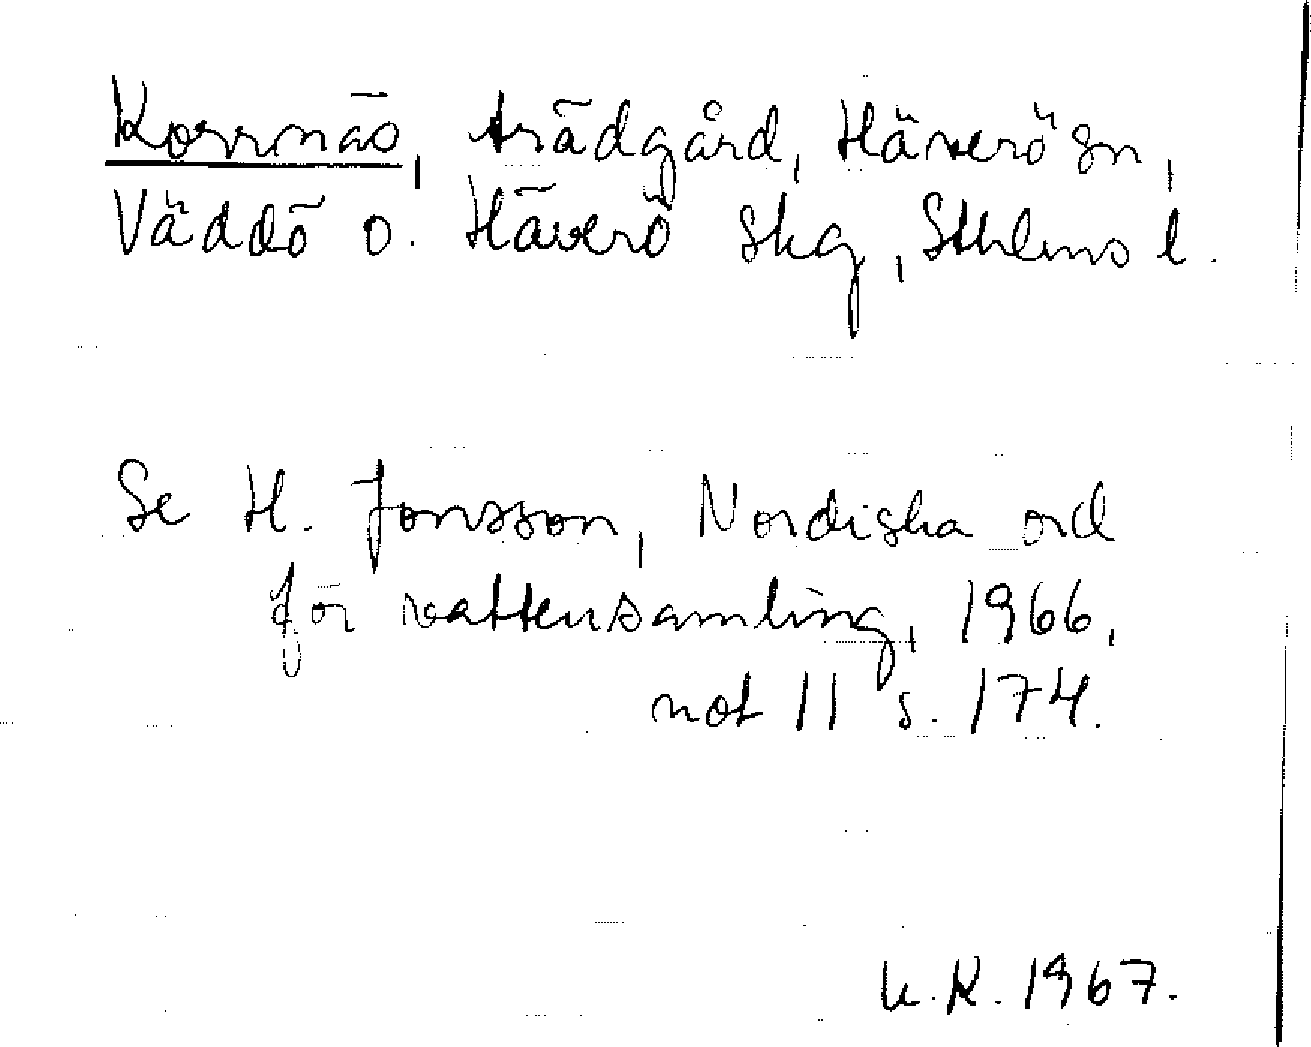 Korrnäs, trädgård, Häverö sn,
Väddö o. Häverö skg, Sthlms l.
Se H. Jonsson, Nordiska ord
för vattensamling, 1966,
not 11 s. 174.
K.R. 1967.